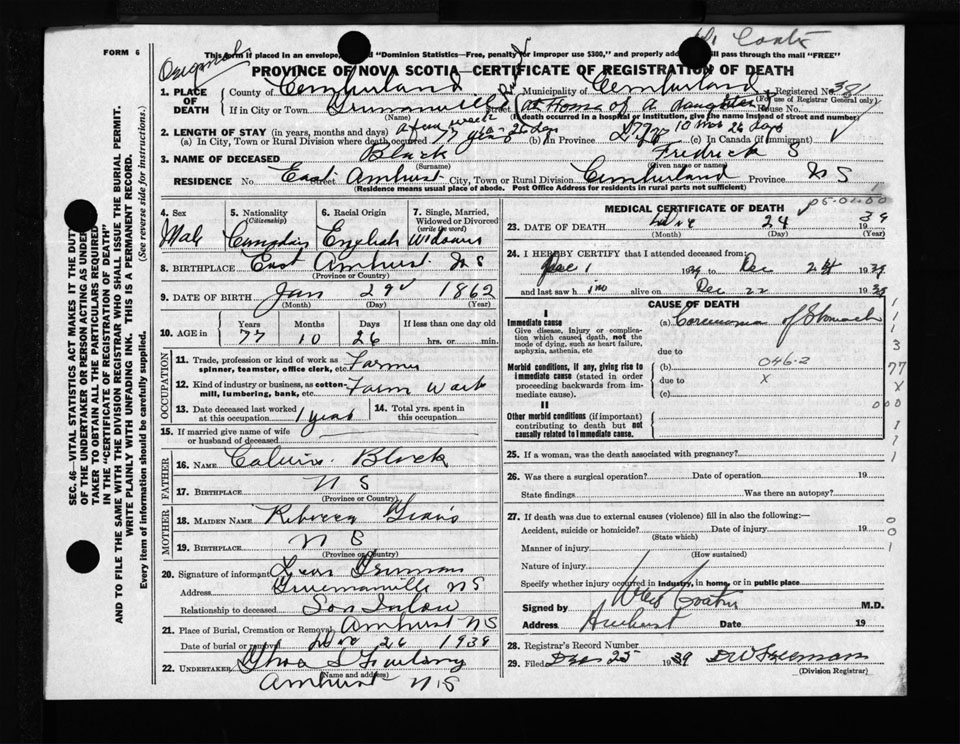 FORM 6
This form if placed in an envelope, "Dominion Statistics—Free, penalty for improper use $300," and properly addressed will pass through the mail "FREE"
Dr Coats
Original
PROVINCE OF NOVA SCOTIA—CERTIFICATE OF REGISTRATION OF DEATH
1. PLACE OF DEATH County of Cumberland Municipality of Cumberland Registered No.
(For use of Registrar General only)
If in City or Town Street at Home of a daughter House No.
(Name) (If death occurred in a hospital or institution, give the name instead of street and number)
2. LENGTH OF STAY (in years, months and days) a few weeks
(a) In City, Town or Rural Division where death occurred (b) In Province 77 yrs 10 mos 26 days (c) In Canada (if immigrant)
3. NAME OF DECEASED Black Fredrick S
(Surname) (Given name or names)
RESIDENCE No. Street East Amherst City, Town or Rural Division Cumberland Province N S
(Residence means usual place of abode. Post Office Address for residents in rural parts not sufficient)
4. Sex 5. Nationality (Citizenship) 6. Racial Origin 7. Single, Married, Widowed or Divorced (write the word)
Male Canadian English Widower
8. BIRTHPLACE East Amherst N S
(Province or Country)
9. DATE OF BIRTH Jan 29 1862
(Month) (Day) (Year)
10. AGE in Years Months Days If less than one day old
77 10 26 hrs. or min.
OCCUPATION
11. Trade, profession or kind of work as spinner, teamster, office clerk, etc. Farmer
12. Kind of industry or business, as cotton-mill, lumbering, bank, etc. Farm Work
13. Date deceased last worked at this occupation 1 year 14. Total yrs. spent in this occupation
15. If married give name of wife or husband of deceased
FATHER
16. NAME Calvin Black
17. BIRTHPLACE N S
(Province or Country)
MOTHER
18. MAIDEN NAME Rebecca
19. BIRTHPLACE N S
(Province or Country)
20. Signature of informant
Address N S
Relationship to deceased Son In law
21. Place of Burial, Cremation or Removal Amherst N S
Date of burial or removal 26 1939
22. UNDERTAKER
(Name and address)
Amherst N S
MEDICAL CERTIFICATE OF DEATH
23. DATE OF DEATH 24 39
(Month) (Day) (Year)
24. I HEREBY CERTIFY that I attended deceased from:
1 1939 to Dec 24 1939
and last saw him alive on Dec 22 1939
CAUSE OF DEATH
I
Immediate cause (a) Carcinoma of Stomach
Give disease, injury or complication which caused death, not the mode of dying, such as heart failure, asphyxia, asthenia, etc
due to
Morbid conditions, if any, giving rise to immediate cause (stated in order proceeding backwards from immediate cause). (b) 046-2
due to X
(c)
II
Other morbid conditions (if important) contributing to death but not causally related to immediate cause.
25. If a woman, was the death associated with pregnancy?
26. Was there a surgical operation? Date of operation 19
State findings Was there an autopsy?
27. If death was due to external causes (violence) fill in also the following:—
Accident, suicide or homicide? Date of injury 19
(State which)
Manner of injury
(How sustained)
Nature of injury
Specify whether injury occurred in industry, in home, or in public place
Signed by M.D.
Address Amherst Date 19
28. Registrar's Record Number
29. Filed Dec 25 1939 D W Freeman
(Division Registrar)
SEC. 46—VITAL STATISTICS ACT MAKES IT THE DUTY OF THE UNDERTAKER OR PERSON ACTING AS UNDERTAKER TO OBTAIN ALL THE PARTICULARS REQUIRED IN THE "CERTIFICATE OF REGISTRATION OF DEATH" AND TO FILE THE SAME WITH THE DIVISION REGISTRAR WHO SHALL ISSUE THE BURIAL PERMIT.
WRITE PLAINLY WITH UNFADING INK. THIS IS A PERMANENT RECORD.
Every item of information should be carefully supplied. (See reverse side for instructions.)